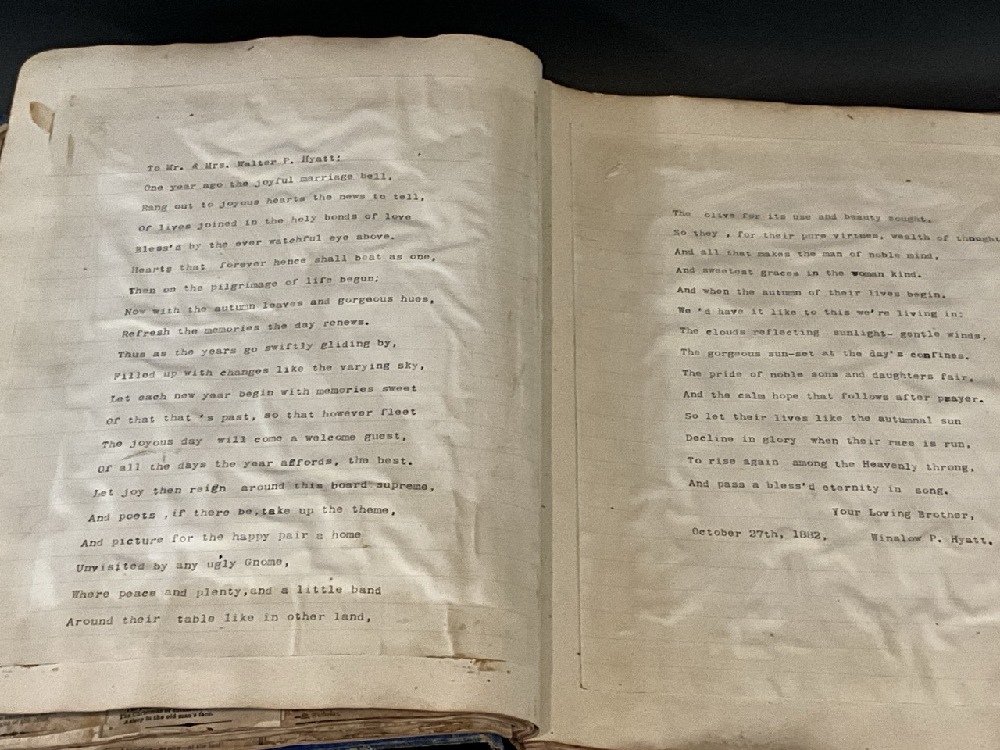 To Mr. & Mrs. Walter P. Hyatt:
One year ago the joyful marriage bell,
Rang out to joyous hearts the news to tell,
Of lives joined in the holy bonds of love
Bless'd by the ever watchful eye above.
Hearts that forever hence shall beat as one,
Then on the pilgrimage of life begun;
Now with the autumn leaves and gorgeous hues,
Refresh the memories the day renews.
Thus as the years go swiftly gliding by,
Filled up with changes like the varying sky,
Let each new year begin with memories sweet
Of that that 's past, so that however fleet
The joyous day will come a welcome guest,
Of all the days the year affords, the best.
Let joy then reign around this board supreme,
And poets ,if there be,take up the theme,
And picture for the happy pair a home
Unvisited by any ugly Gnome,
Where peace and plenty,and a little band
Around their table like in other land,
The olive for its use and beauty sought.
So they , for their pure virtues, wealth of thought
And all that makes the man of noble mind,
And sweetest graces in the woman kind.
And when the autumn of their lives begin.
We 'd have it like to this we're living in;
The clouds reflecting sunlight- gentle winds,
The gorgeous sun-set at the day's confines.
The pride of noble sons and daughters fair,
And tha calm hope that follows after prayer.
So let their lives like the autumnal sun
Decline in glory when their race is run,
To rise again among the Heavenly throng,
And pass a bless'd eternity in song.
Your Loving Brother,
October 27th, 1882, Winslow P. Hyatt.
a step in the old man's